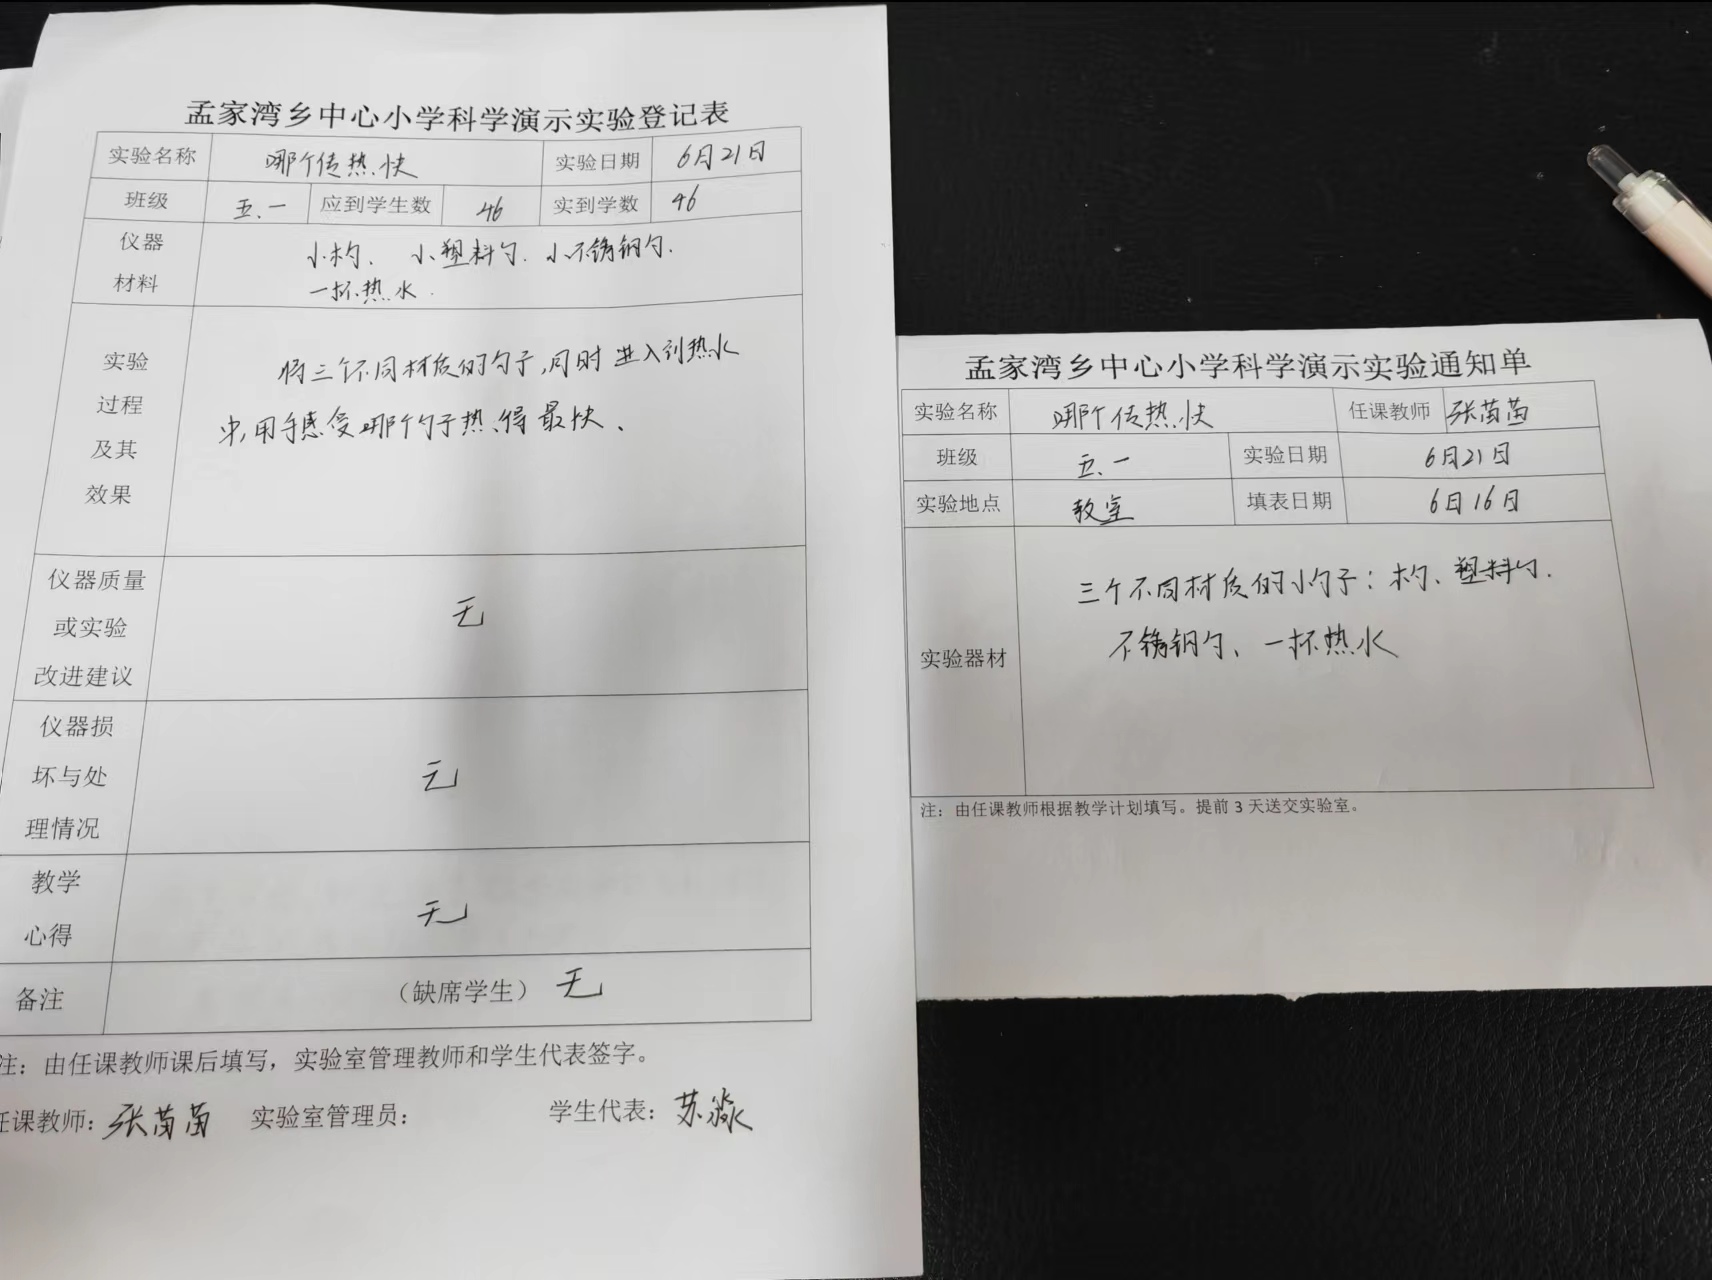 孟家湾乡中心小学科学演示实验登记表
实验名称 哪个传热快 实验日期 6月21日
班级 五.一 应到学生数 46 实到学数 46
仪器
材料
小木勺、小塑料勺.小不锈钢勺.
一杯热水.
实验
过程
及其
效果
将三个不同材质的勺子,同时进入到热水
中,用手感受哪个勺子热得最快、
仪器质量
或实验
改进建议
无
仪器损
坏与处
理情况
无
教学
心得
无
备注 （缺席学生） 无
注：由任课教师课后填写，实验室管理教师和学生代表签字。
任课教师：张茵茵 实验室管理员： 学生代表：苏淼
孟家湾乡中心小学科学演示实验通知单
实验名称 哪个传热快 任课教师 张茵茵
班级 五.一 实验日期 6月21日
实验地点 教室 填表日期 6月16日
实验器材
三个不同材质的小勺子：木勺、塑料勺.
不锈钢勺、一杯热水
注：由任课教师根据教学计划填写。提前 3 天送交实验室。